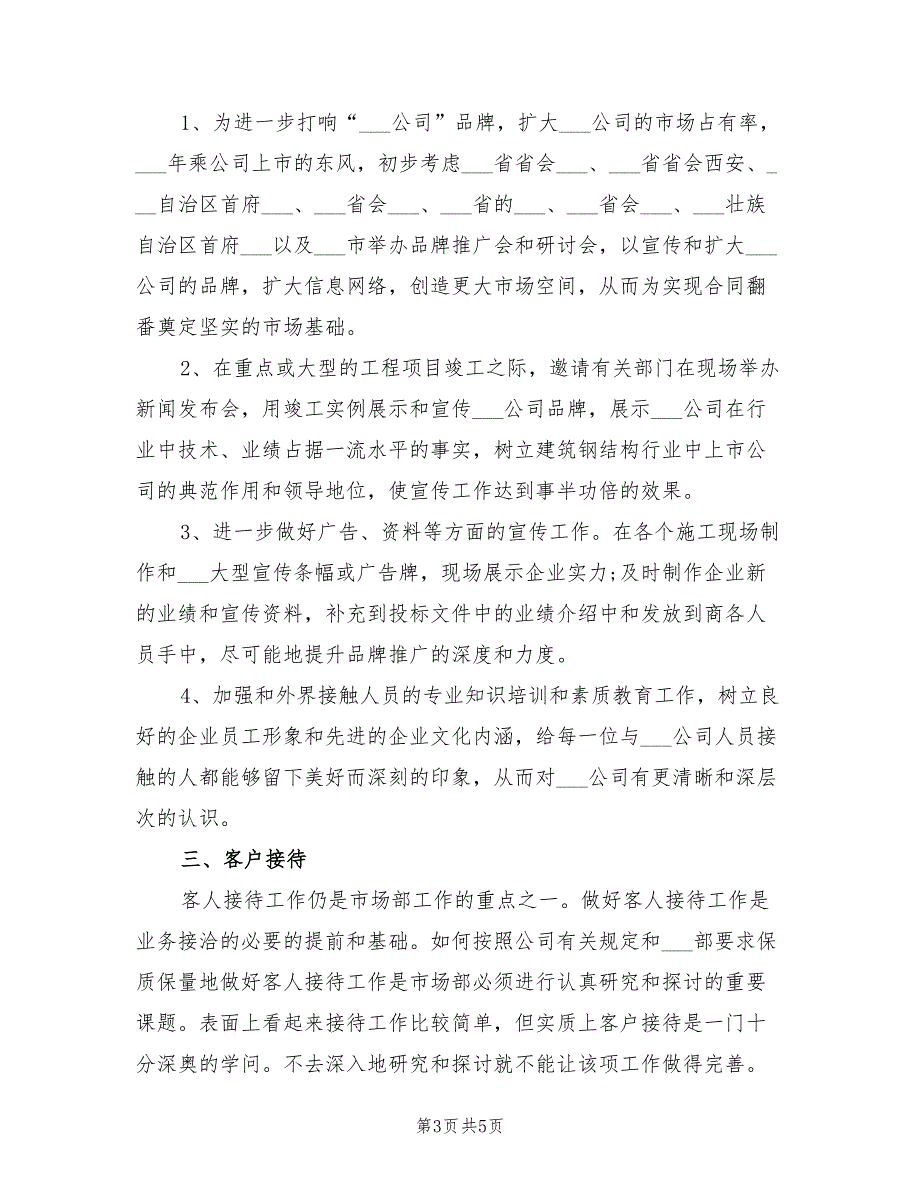 1、为进一步打响“___公司”品牌，扩大___公司的市场占有率，
___年乘公司上市的东风，初步考虑___省省会___、___省省会西安、_
__自治区首府___、___省会___、___省的___、___省会___、___壮族
自治区首府___以及___市举办品牌推广会和研讨会，以宣传和扩大___
公司的品牌，扩大信息网络，创造更大市场空间，从而为实现合同翻
番奠定坚实的市场基础。
2、在重点或大型的工程项目竣工之际，邀请有关部门在现场举办
新闻发布会，用竣工实例展示和宣传___公司品牌，展示___公司在行
业中技术、业绩占据一流水平的事实，树立建筑钢结构行业中上市公
司的典范作用和领导地位，使宣传工作达到事半功倍的效果。
3、进一步做好广告、资料等方面的宣传工作。在各个施工现场制
作和___大型宣传条幅或广告牌，现场展示企业实力;及时制作企业新
的业绩和宣传资料，补充到投标文件中的业绩介绍中和发放到商各人
员手中，尽可能地提升品牌推广的深度和力度。
4、加强和外界接触人员的专业知识培训和素质教育工作，树立良
好的企业员工形象和先进的企业文化内涵，给每一位与___公司人员接
触的人都能够留下美好而深刻的印象，从而对___公司有更清晰和深层
次的认识。
三、客户接待
客人接待工作仍是市场部工作的重点之一。做好客人接待工作是
业务接洽的必要的提前和基础。如何按照公司有关规定和___部要求保
质保量地做好客人接待工作是市场部必须进行认真研究和探讨的重要
课题。表面上看起来接待工作比较简单，但实质上客户接待是一门十
分深奥的学问。不去深入地研究和探讨就不能让该项工作做得完善。
第3页共5页